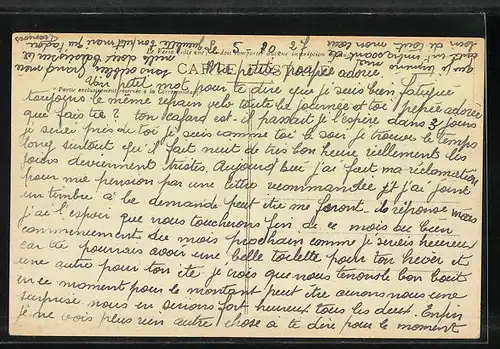 CARTE POSTALE
Ma petite poupée adorée
Un petit mot pour te dire que je suis bien fatigué
toujours le même refrain velo toute la journée et toi poupée adorée
que fais tu ? ton cafard est-il passé je l'espère dans 3 jours
je serai près de toi je suis comme toi le soir je trouve le temps
long surtout qu'il fait nuit de très bon heure réellement les
jours deviennent tristes. Aujourd'hui j'ai fait ma réclamation
pour ma pension par une lettre recommandée et j'ai joint
un timbre à la demande peut être me feront ils réponse mais
j'ai l'espoir que nous toucherons fin de ce mois ou bien
commencement du mois prochain comme je serais heureux
car tu pourrais avoir une belle toilette pour ton hiver et
une autre pour ton été je crois que nous tenons le bon bout
en ce moment pour le montant peut être aurons nous une
surprise nous en serions fort heureux tous les deux. Enfin
je ne vois plus rien autre chose à te dire pour le moment